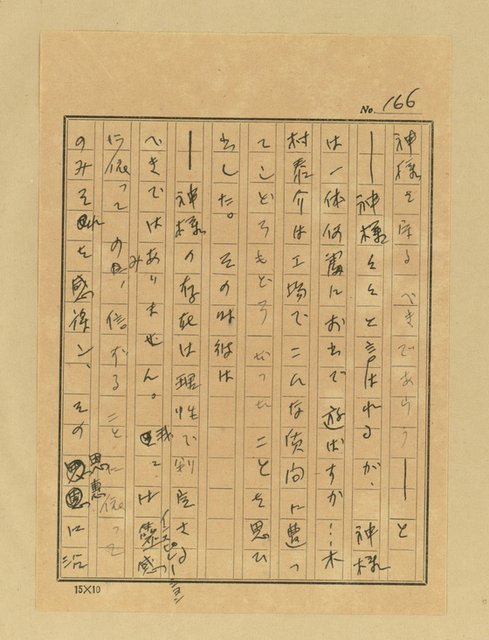 No. 166
神様を守るべきであらう――と
――神様々々と言はれるが、神様
は一体何處におゐで遊ばすか…木
村泰介は工場でこんな質問に遭つ
てどぎもどぎつた ことを思ひ
出した。その時彼は
――神様の存在は理性で判断さる
べきではありません。我々は霊感
インスピレーション
に依つてのみ、信ずることに依つて
のみそれを感得し、その恩恵に浴
15×10